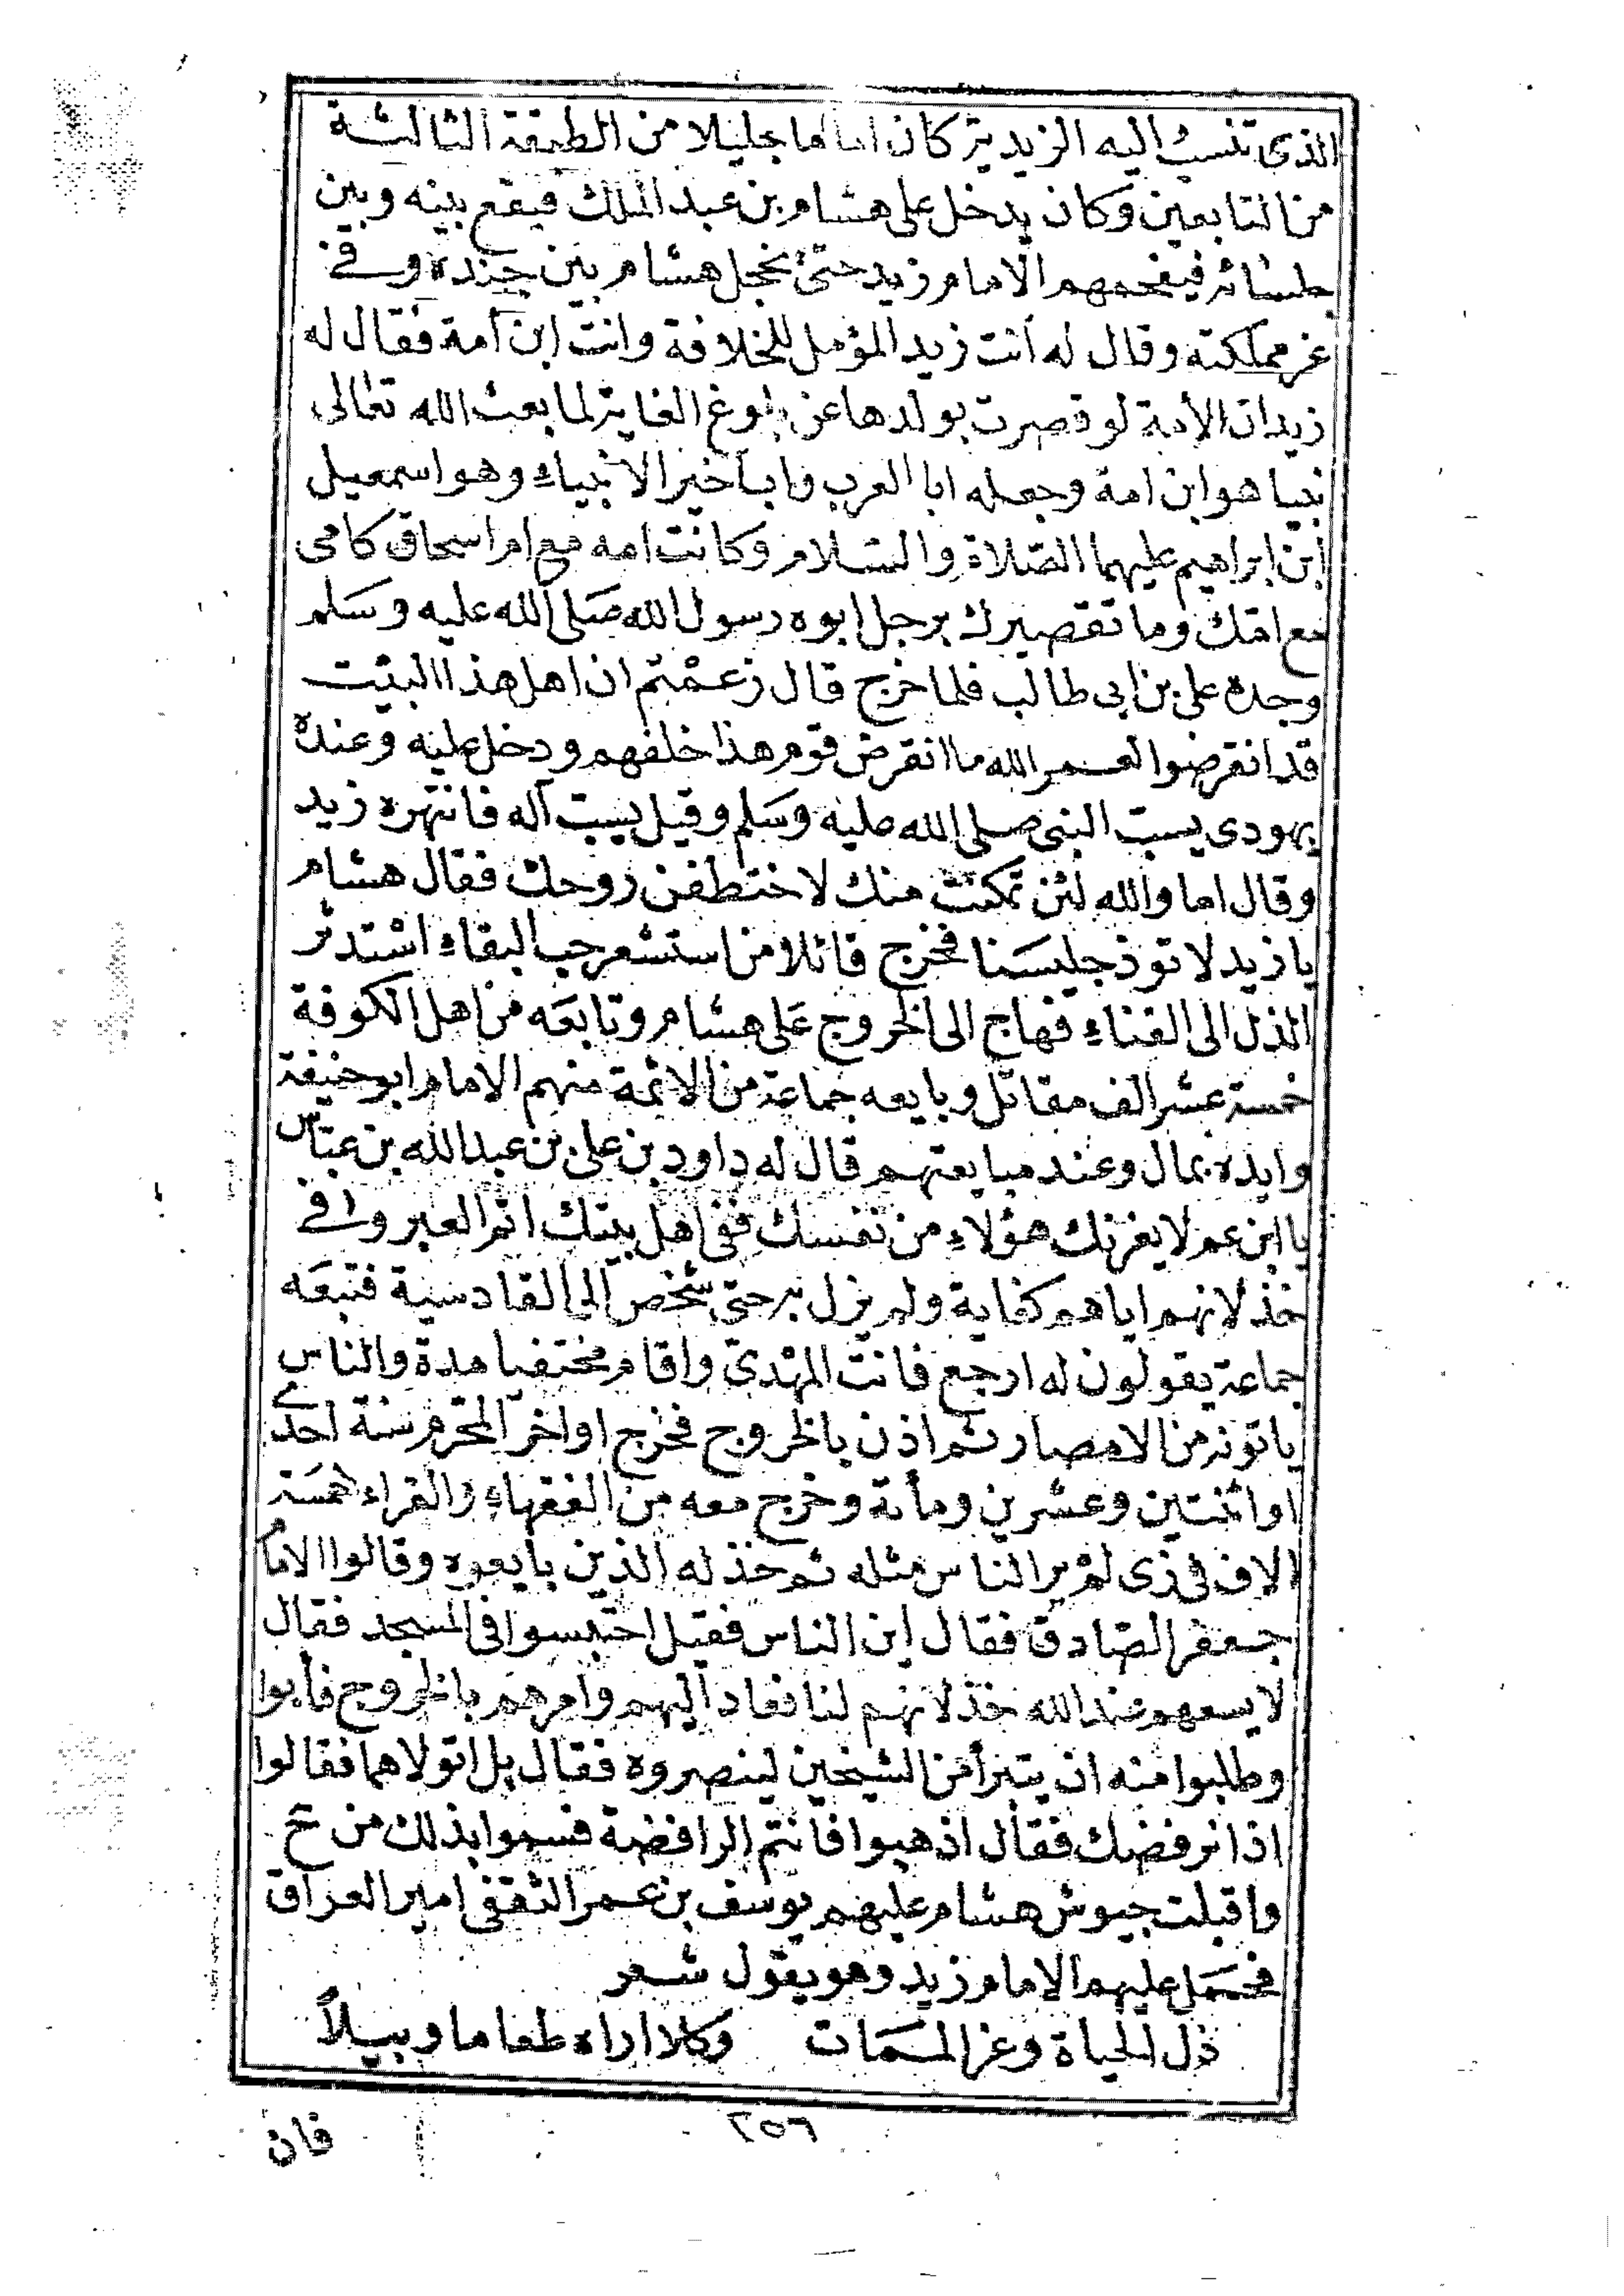 الذى تنسب اليه الزيدية كان اماما جليلا من الطبقة الثالثة
من التابعين وكان يدخل على هشام بن عبد الملك فيقع بينه وبين
جلسائه فيفحمهم الامام زيد حتى يخجل هشام بين جنده وفى
عز مملكته وقال له أنت زيد المؤمل للخلافة وانت ابن أمة فقال له
زيد ان الأمة لو قصرت بولدها عن بلوغ الغاية لما بعث الله تعالى
نبيا هو ابن امة وجعله ابا العرب وابا خير الانبياء وهو اسمعيل
ابن ابراهيم عليهما الصّلاة والسّلام وكانت امه مع ام اسحاق كامى
مع امّك وما تقصيرك برجل ابوه رسول الله صَلى الله عليه وسَلم
وجده على بن ابى طالب فلما خرج قال زعمْتم ان اهل هذا البيْت
قد انقرضوا لعمر الله ما انقرض قوم هذا خلفهم ودخل عليه وعنده
يهودى يسبّ النبى صلى الله عليه وسَلم وقيل يسبّ آله فانتهره زيد
وقال اما والله لئن تمكنت منك لاختطفن روحك فقال هشام
يا زيد لا توذ جليسَنا فخرج قائلا من استشعر حب البقاء استدثر
الذل الى الفناء فهاج الى الخروج عَلى هشام وتابعَه من اهل الكوفة
خمسة عشر الف مقاتل وبايعه جماعة من الائمة منهم الامام ابو حنيفة
وايده بمال وعند مبايعتهم قال له داود بن على بن عبد الله بن عبّاس
يا ابن عم لا يغرنك هؤلاء من نفسك ففى اهل بيتك اتم العبر وافى
خذلانهم اياهم كفاية ولم يزل به حتى شخص الى القادسية فتبعَه
جماعة يقولون له ارجع فانت المهْدىّ واقام مختفيا مدة والناس
ياتونه من الامصار ثم اذن بالخروج فخرج اواخر المحرم سنة احدى
او اثنتين وعشرين ومأئة وخرج معه من الفقهاء والقراء خمسَة
الاف فى زى لمْ ير الناس مثله ثم خذله الذين بايعوه وقالوا الامام
جعفر الصّادق فقال اين الناس فقيل احتبسوا فى المسجد فقال
لا يسعهم عند الله خذلانهم لنا فعاد اليهم وامرهم بالخروج فأبوا
وطلبوا منه ان يتبرأ من الشيخين لينصروه فقال بل اتولاهما فقالوا
اذا نرفضك فقال اذهبوا فانتم الرافضة فسموا بذلك من ح
واقبلت جيوش هشام عليهم يوسف بن عمر الثقفى امير العراق
فحمَل عليهم الامام زيد وهو يقول شعر
ذل الحياة وعز الممَات وكلا اراه طعاما وبيلاً
٢٥٦
فان